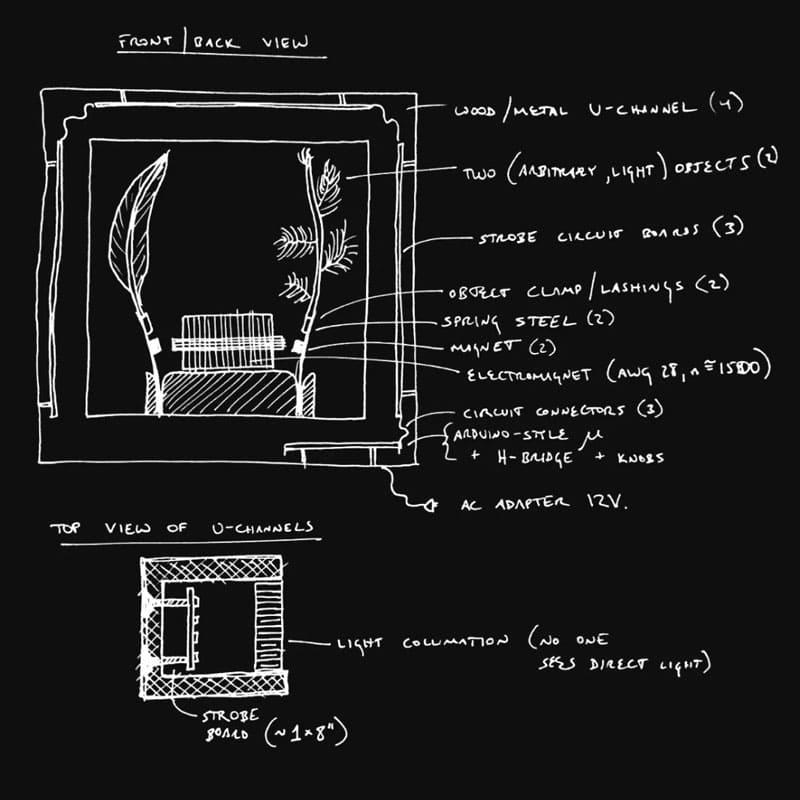 FRONT/BACK VIEW
WOOD/METAL U-CHANNEL (4)
TWO (ARBITRARY, LIGHT) OBJECTS (2)
STROBE CIRCUIT BOARDS (3)
OBJECT CLAMP/LASHINGS (2)
SPRING STEEL (2)
MAGNET (2)
ELECTROMAGNET (AWG 28, n ≅ 1500)
CIRCUIT CONNECTORS (3)
ARDUINO-STYLE μ
+ H-BRIDGE + KNOBS
AC ADAPTER 12V.
TOP VIEW OF U-CHANNELS
LIGHT COLUMATION (NO ONE
SEES DIRECT LIGHT)
STROBE
BOARD (~1×8")